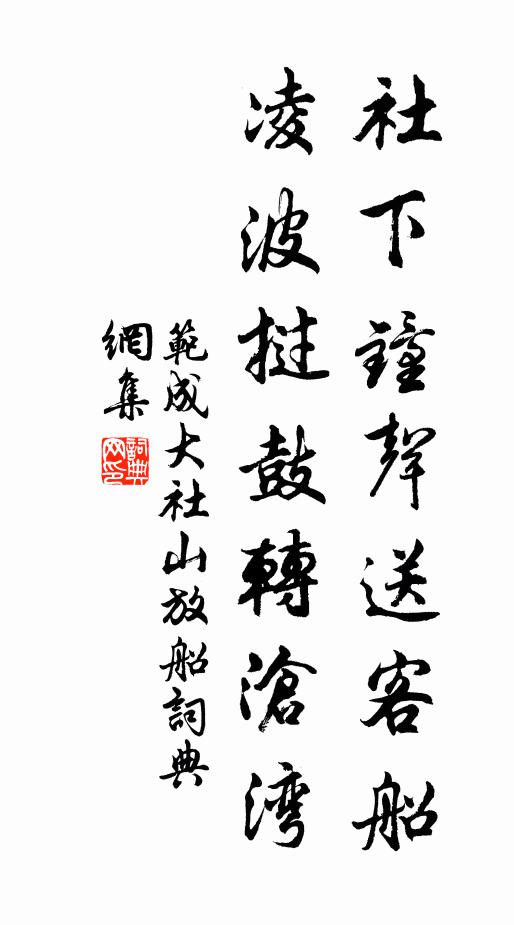 社下鐘聲送客船
凌波撾鼓轉滄湾
範成大社山放船詞典
網集
詞典网印